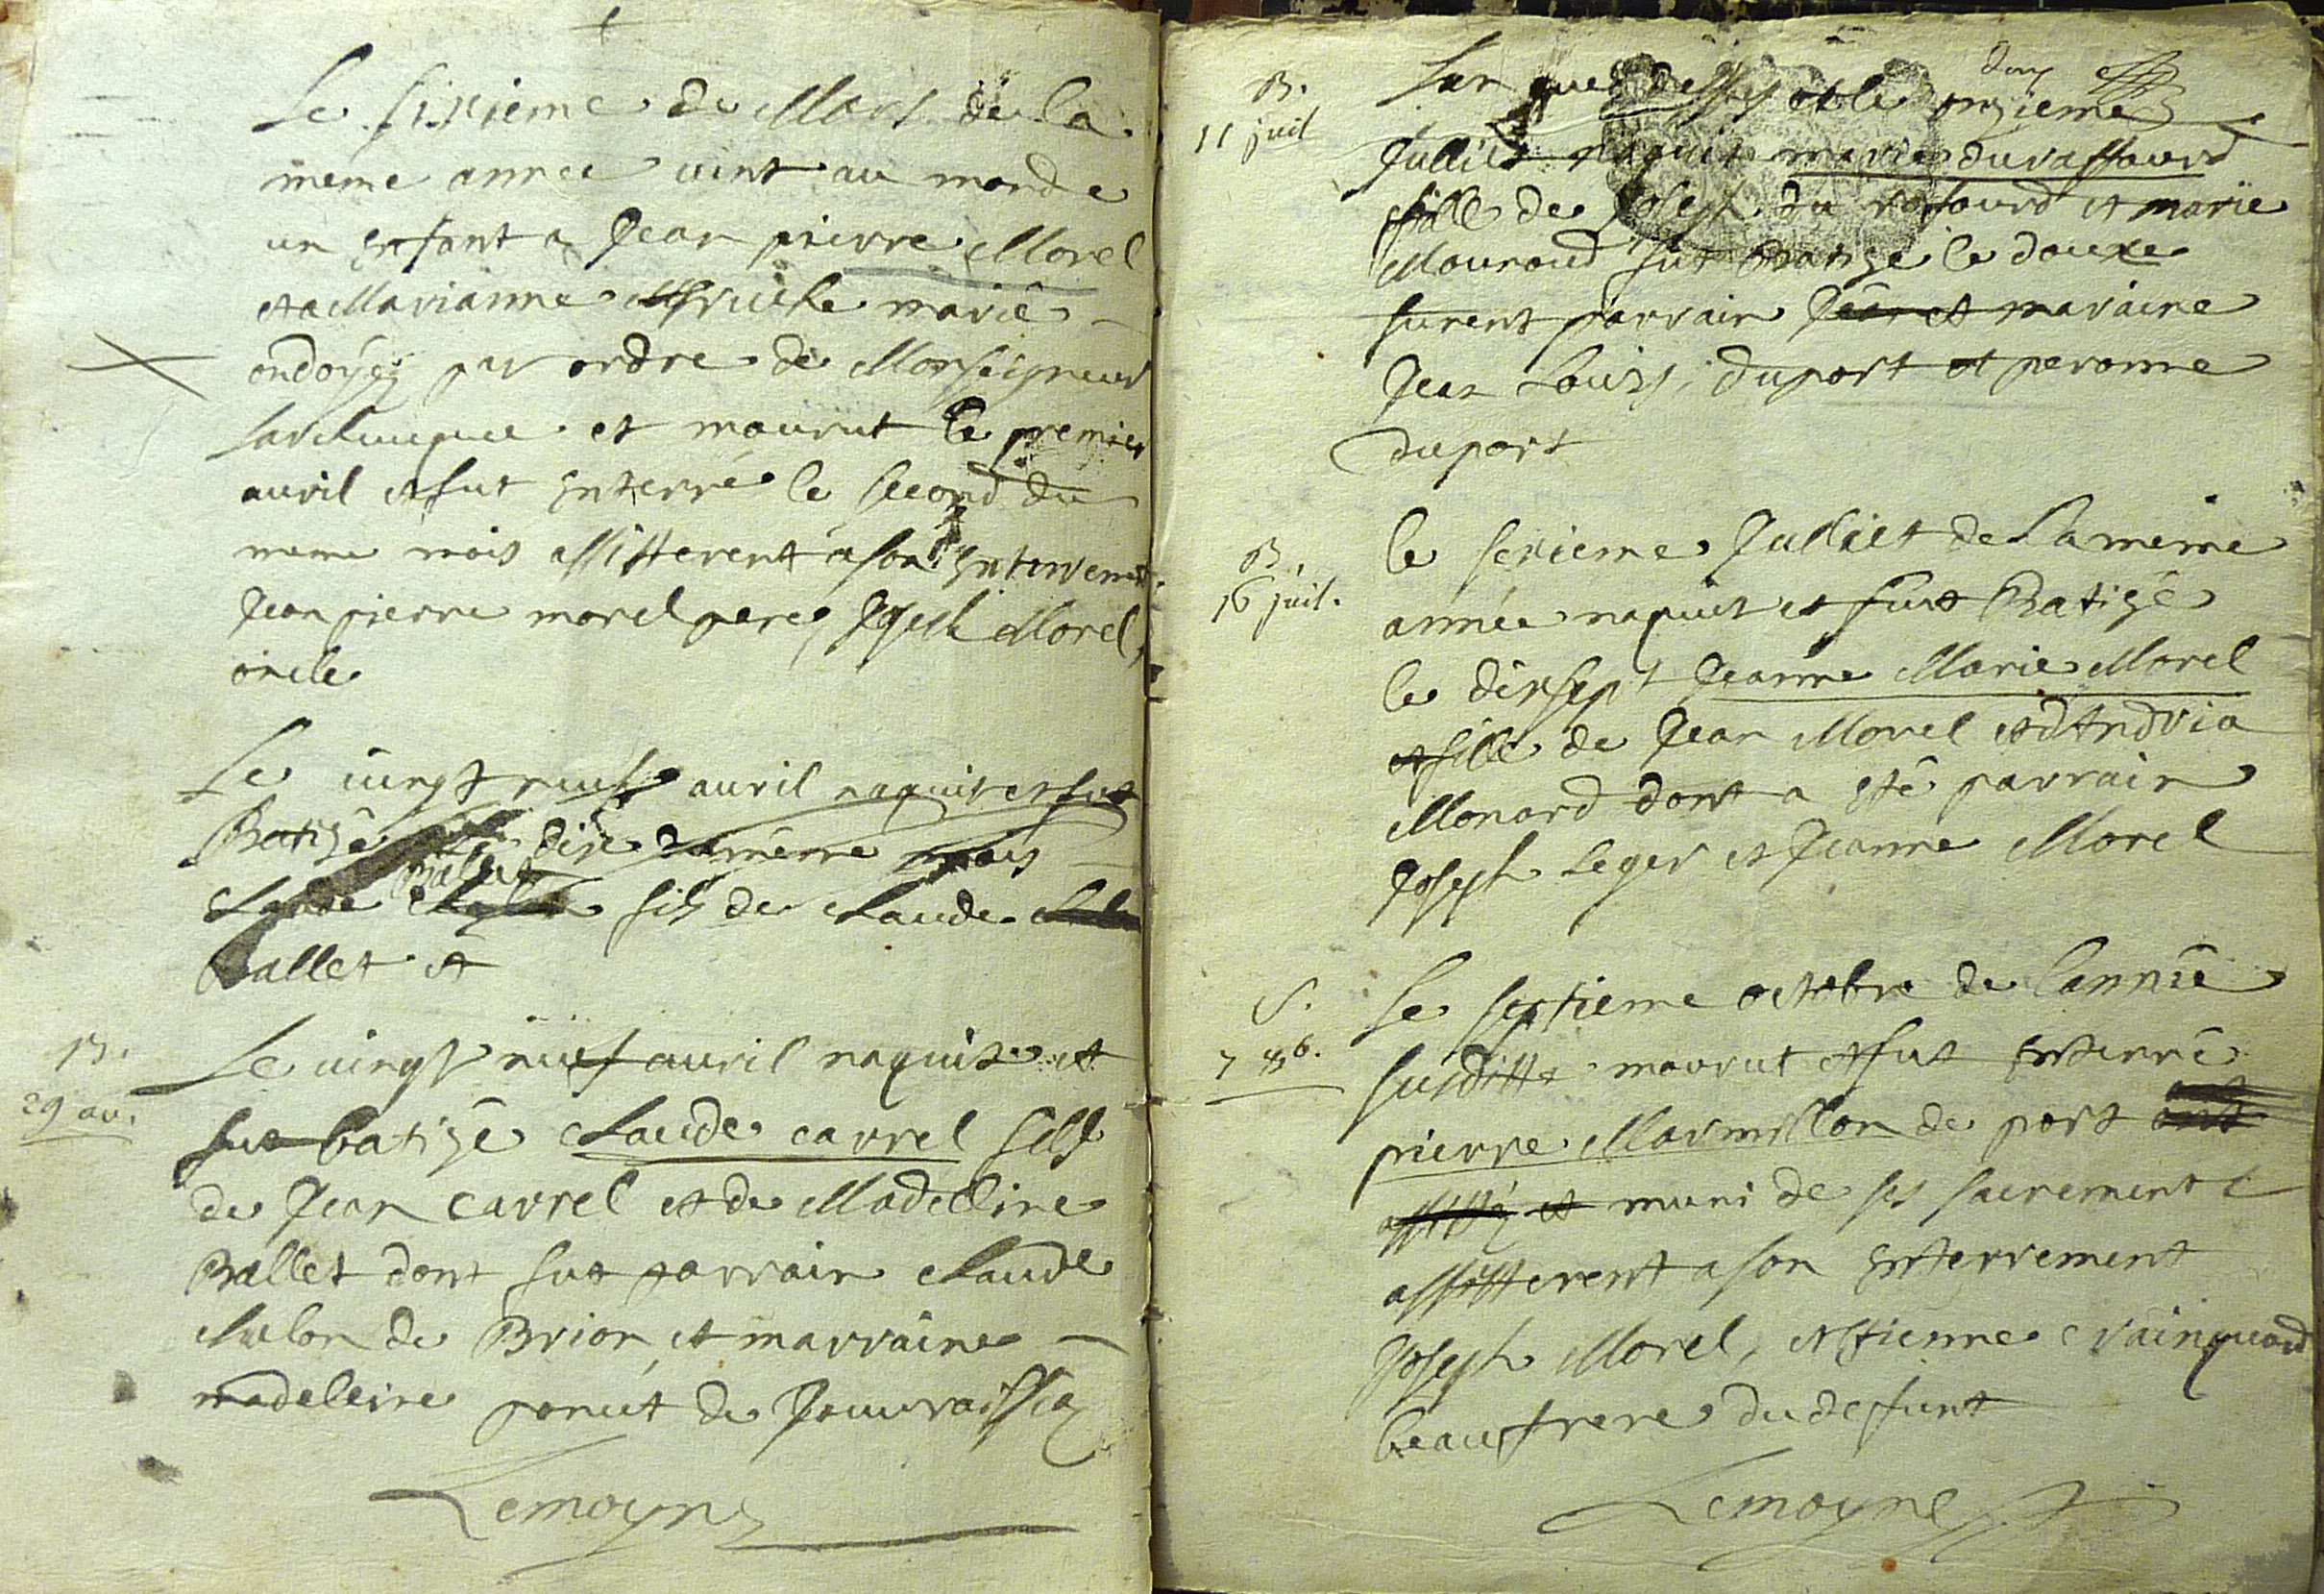 Le sixieme de Mars de la
meme année vint au monde
un enfant a Jean pierre Morel
et a Marianne marië
ondoyéz par ordre de Monseigneur
larchueque et mourut le premier
auril et fut enterré le second du
meme mois assisterent a son enterrement
Jean pierre morel pere, Joseph Morel,
oncle
Le uingt neuf auril naquit et fut
Batisé dixe du même mois
Claude Ballet fils de Claude
Ballet et
B.
29 av.
Le uingt neuf auril naquit et
fut batizé Claude carrel fils
de Jean carrel et de Madelline
Ballet dont fut parrain Claude
de Brion et marraine
madeleine de
Lemoyne
B.
11 juil
Lan que dessus et le onzieme
Julliet naquit marie duraffourd
fille de Joseph du raffourd et marie
Mouraud fut Batizé le douxe
furent parrain Jean et maraine
Jean Louis duport et peronne
duport
B.
16 juil.
le sexieme Julliet de La meme
année naquit et fut Batizé
le dixsept Jeanne Marie Morel
et fille de Jean Morel et dAndria
Monard dont a eté parrain
Joseph Leger et Jeanne Morel
S.
7 8b.
Le septieme octobre de lannée
susditte mourut et fut enterré
pierre Marmillon de port
assisté et muni de ses sacrements
assisterent a son enterrement
Joseph Morel, etienne
beaufrere du defunt
Lemoyne